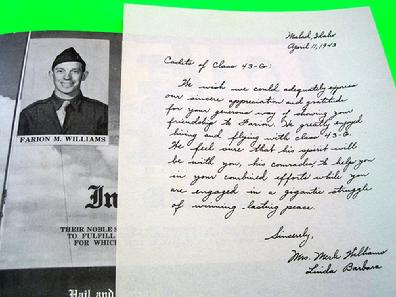 Malad, Idaho
April 11, 1943
Cadets of Class 43-G:
We wish we could adequately express
our sincere appreciation and gratitude
for your generous way of showing your
friendship to Farion. He greatly enjoyed
living and flying with class 43-G.
We feel sure that his spirit will
be with you, his comrades, to help you
in your combined efforts while you
are engaged in a gigantic struggle
of winning lasting peace.
Sincerely,
Mrs. Merle Williams
Linda Barbara
FARION M. WILLIAMS
In
THEIR NOBLE S
TO FULFILL
FOR WHICH
Hail and